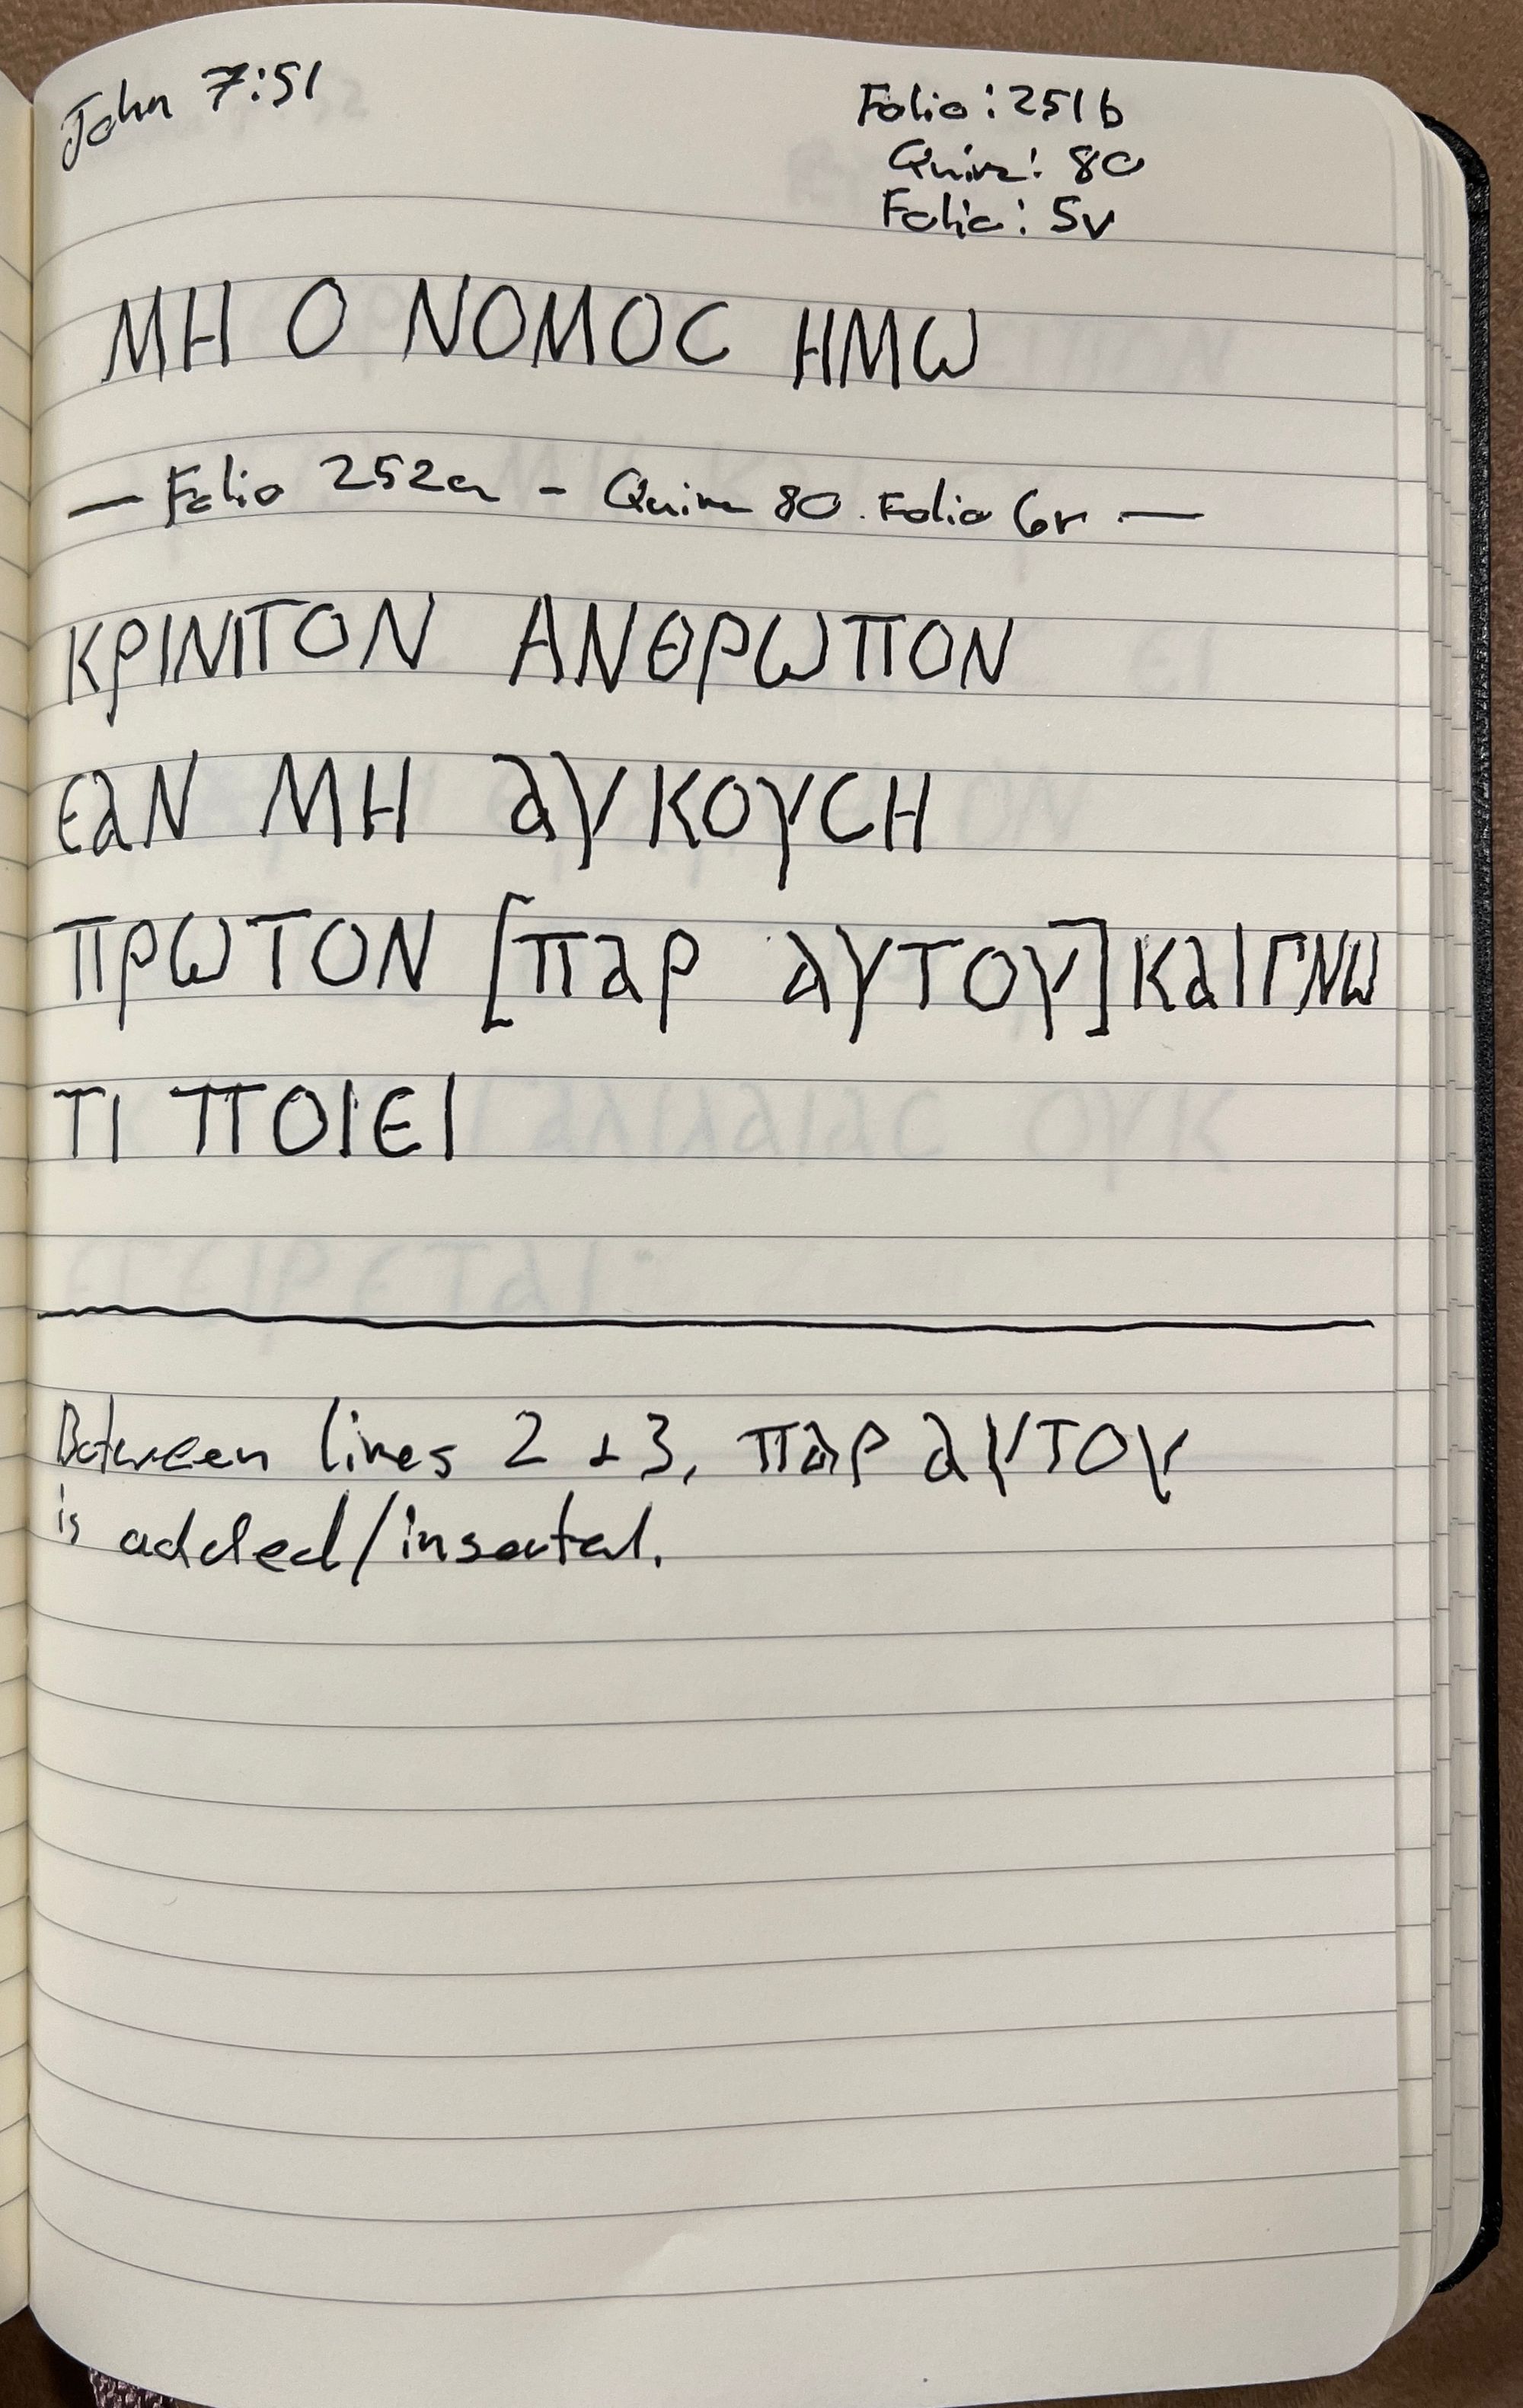 John 7:51
Folio: 251b
Quire: 80
Folio: 5v
ΜΗ Ο ΝΟΜΟC ΗΜω
— Folio 252a - Quire 80. Folio 6r —
ΚΡΙΝΙΤΟΝ ΑΝΘΡωΠΟΝ
ΕΑΝ ΜΗ ΑΥΚΟΥCΗ
ΠΡωΤΟΝ [ΠΑΡ ΑΥΤΟΥ] ΚΑΙ ΓΝω
ΤΙ ΠΟΙΕΙ
Between lines 2 + 3, ΠΑΡ ΑΥΤΟΥ
is added/inserted.